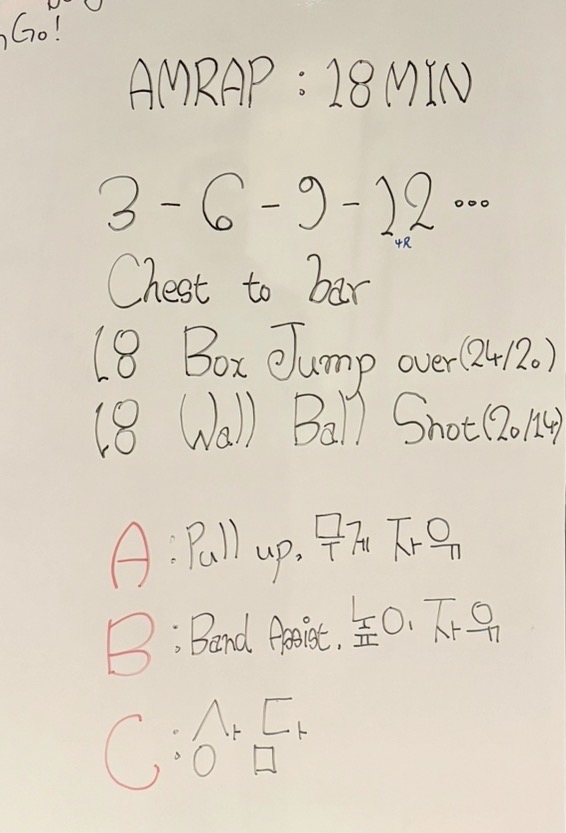 Go!
AMRAP : 18 MIN
3 - 6 - 9 - 12 ...
4R
Chest to bar
18 Box Jump over (24/20)
18 Wall Ball Shot (20/14)
A : Pull up, 무게 자유
B : Band Assist, 높이 자유
C : 상담